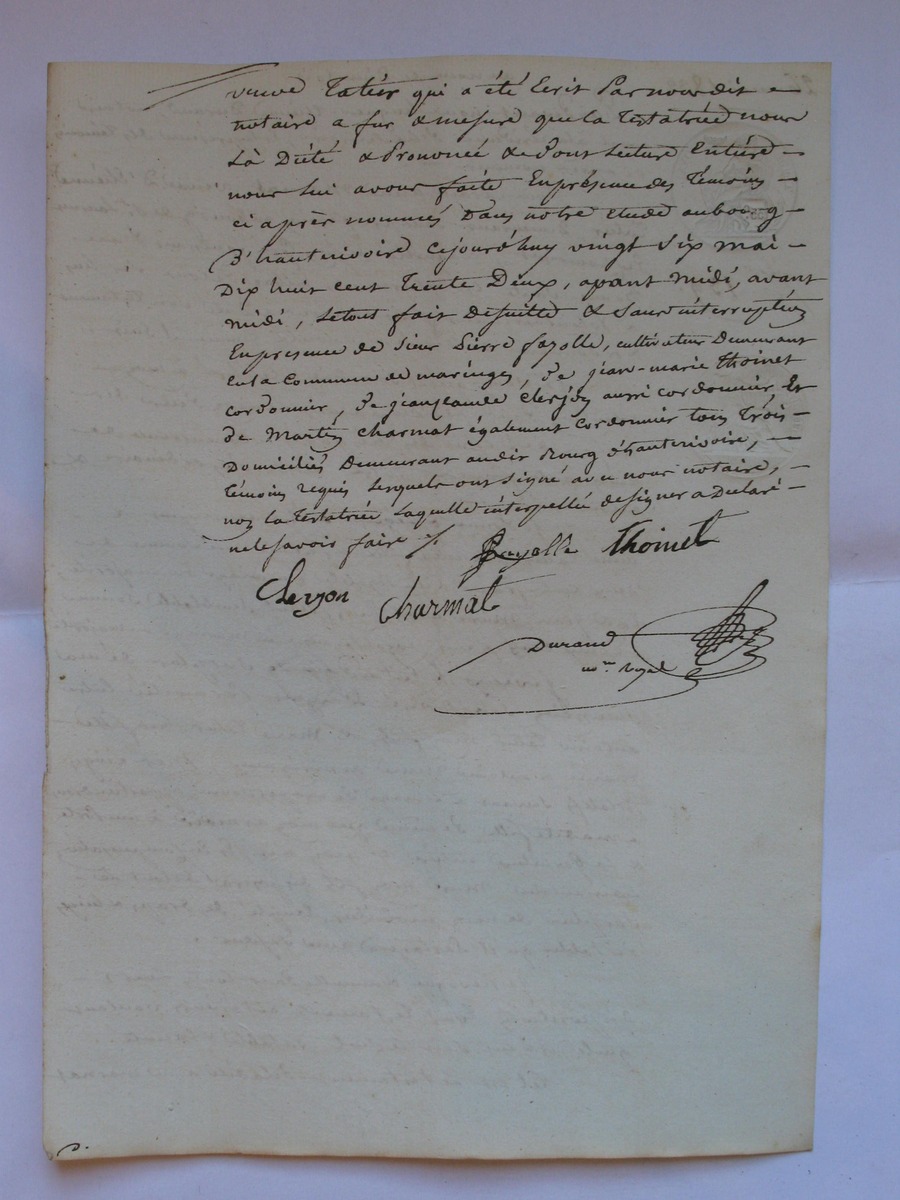 veuve Tatier qui a été Ecrit Par nous dit
notaire a fur & mesure que la Testatrice nous
La Dicté & Prononcé & Dont Lecture Entière
nous Lui avons faite En présence des Témoins
ci après nommés Dans notre Etude au bourg
D'hauterivoire Cejourd'huy vingt Six mai
Dix huit cent Trente Deux, avant midi, avant
midi, Le tout fait De suitte & Sans intérruption
En presence de Sieur Pierre fayolle, cultivateur Demeurant
En la Commune de maringes, De jean-marie Thoinet
cordonnier, De jean claude Clerjon aussi cordonnier, Et
De Martin Charmat également Cordonnier tous Trois
Domiciliés Demeurant audit Bourg d'hauterivoire,
Témoins requis Lesquels ont signé avec nous notaire,
non la Testatrice Laquelle intérpellée de signer a Déclaré
ne le savoir faire ./.
fayolle Thoinet
Clerjon Charmat
Durand
nre royal
D.